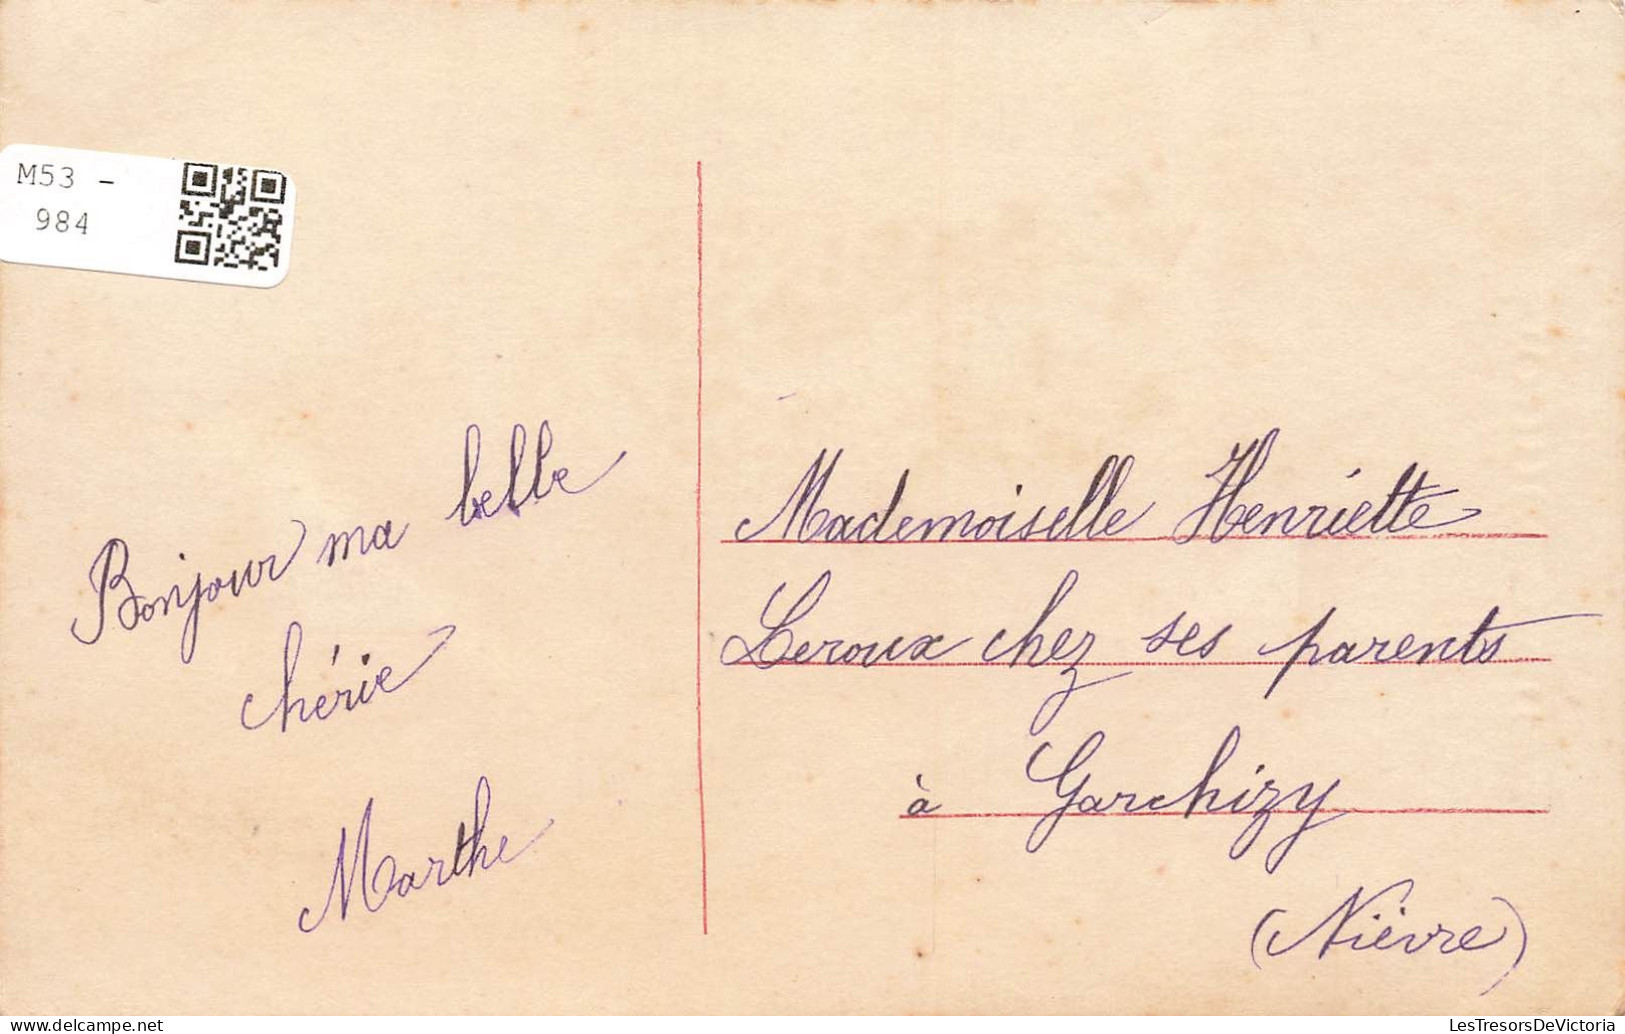 M53 -
984
Bonjour ma belle
chérie
Marthe
Mademoiselle Henriette
Leroux chez ses parents
à Garchizy
(Nièvre)
LesTresorsDeVictoria